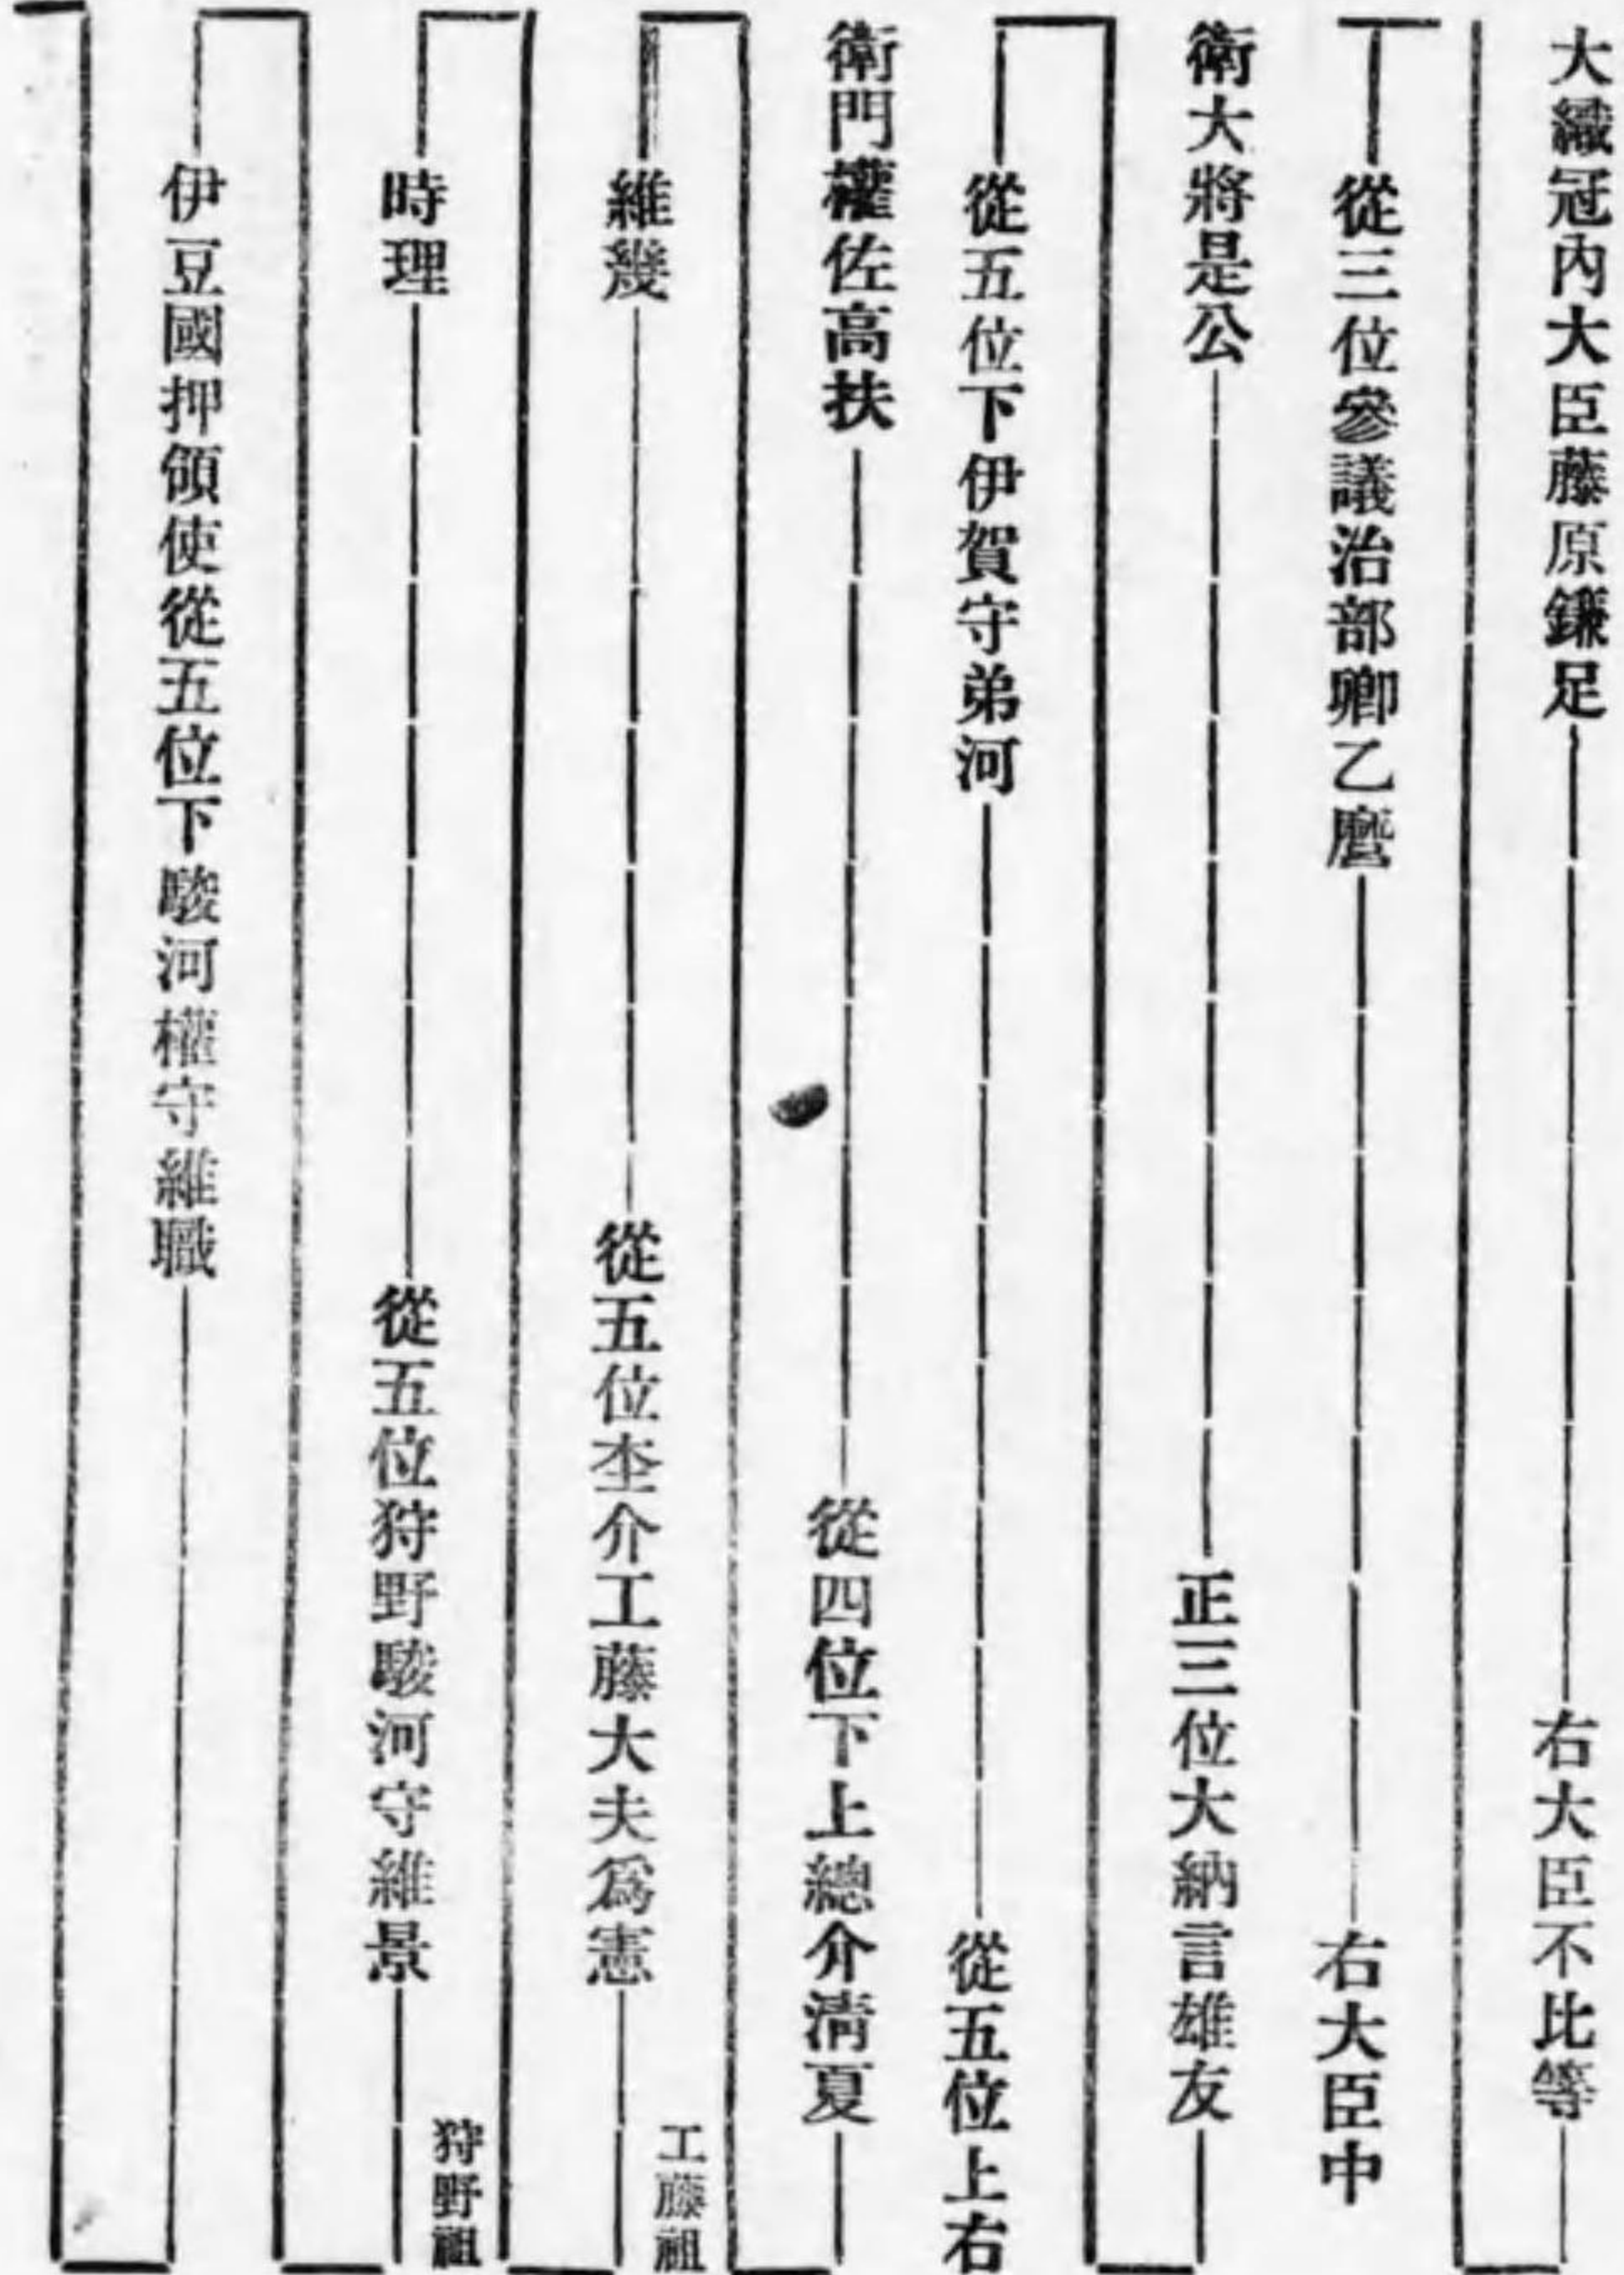 大織冠內大臣藤原鎌足 右大臣不比等
從三位參議治部卿乙麿 右大臣中
衛大將是公 正三位大納言雄友
從五位下伊賀守弟河 從五位上右
衛門權佐高扶 從四位下上總介清夏
維幾 從五位杢介工藤大夫爲憲 工藤祖
時理 從五位狩野駿河守維景 狩野祖
伊豆國押領使從五位下駿河權守維職